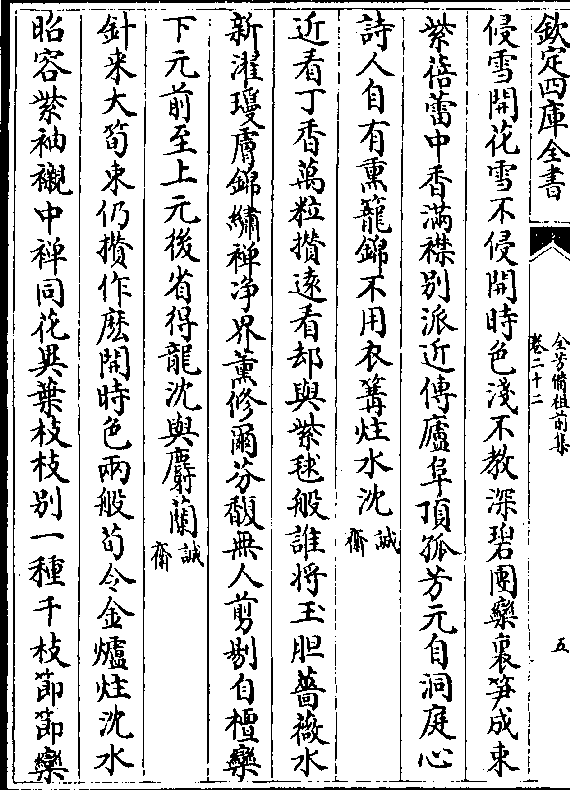 欽定四庫全書
全芳備祖前集
卷二十二
五
侵雪開花雪不侵開時色淺不教深碧團欒裏笋成束
紫蓓蕾中香滿襟别派近傳廬阜頂孤芳元自洞庭心
詩人自有熏籠錦不用衣篝炷水沈誠齋
近看丁香萬粒攅遠看却與紫毬般誰將玉胆薔薇水
新濯瓊膚錦繡禅浄界薰修爾芬馥無人剪剔自檀欒
下元前至上元後省得龍沈與麝蘭誠齋
針来大筍束仍攅作麽開時色兩般荀令金爐炷沈水
昭容紫袖襯中禅同花異葉枝枝别一種千枝節節欒